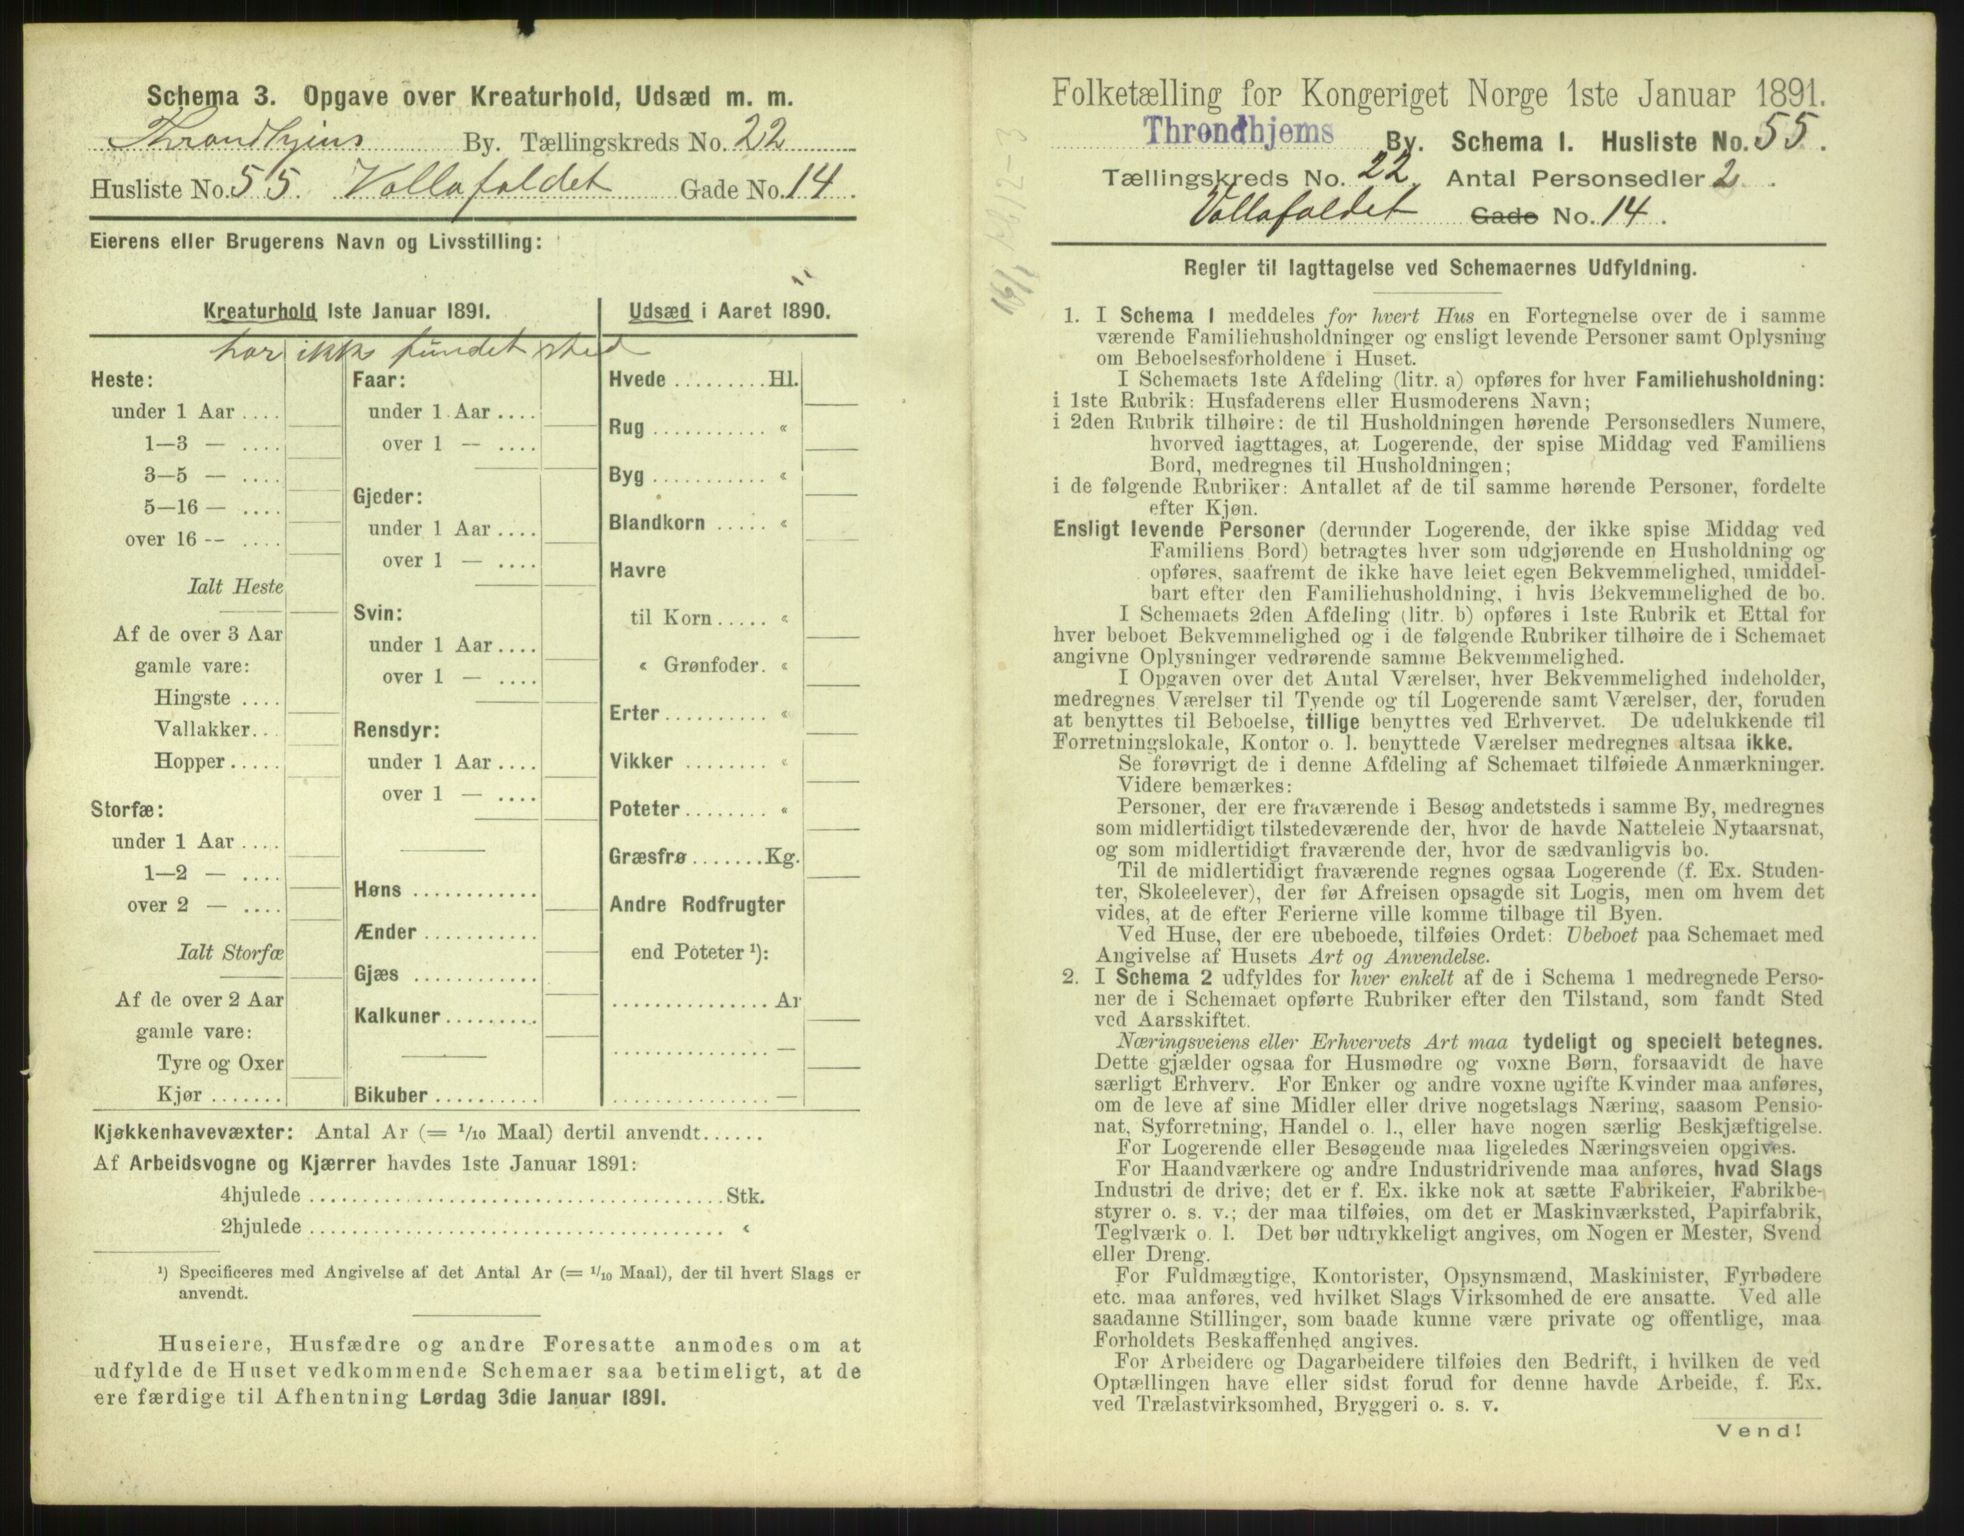 Schema 3. Opgave over Kreaturhold, Udsæd m. m.
Throndhjems By. Tællingskreds No. 22
Husliste No. 55. Vollafaldet Gade No. 14.
Eierens eller Brugerens Navn og Livsstilling:
Kreaturhold 1ste Januar 1891.
har ikke fundet sted
Heste:
under 1 Aar ....
1—3 — ....
3—5 — ....
5—16 — ....
over 16 — ....
Ialt Heste
Af de over 3 Aar
gamle vare:
Hingste ....
Vallakker...
Hopper.....
Storfæ:
under 1 Aar ....
1—2 — ....
over 2 — ....
Ialt Storfæ
Af de over 2 Aar
gamle vare:
Tyre og Oxer
Kjør .......
Faar:
under 1 Aar ....
over 1 — ....
Gjeder:
under 1 Aar ....
over 1 — ....
Svin:
under 1 Aar ....
over 1 — ....
Rensdyr:
under 1 Aar ....
over 1 — ....
Høns ............
Ænder ...........
Gjæs ............
Kalkuner.........
Bikuber ..........
Udsæd i Aaret 1890.
Hvede .........Hl.
Rug ........... «
Byg ........... «
Blandkorn ..... «
Havre
til Korn ..... «
« Grønfoder. «
Erter.......... «
Vikker ........ «
Poteter........ «
Græsfrø .......Kg.
Andre Rodfrugter
end Poteter ¹):
............... Ar
............... —
............... —
Kjøkkenhavevæxter: Antal Ar (= 1/10 Maal) dertil anvendt......
Af Arbeidsvogne og Kjærrer havdes 1ste Januar 1891:
4hjulede ........................................Stk.
2hjulede ........................................ «
¹) Specificeres med Angivelse af det Antal Ar (= 1/10 Maal), der til hvert Slags er
anvendt.
Huseiere, Husfædre og andre Foresatte anmodes om at
udfylde de Huset vedkommende Schemaer saa betimeligt, at de
ere færdige til Afhentning Lørdag 3die Januar 1891.
Folketælling for Kongeriget Norge 1ste Januar 1891.
Throndhjems By. Schema 1. Husliste No. 55.
Tællingskreds No. 22. Antal Personsedler 2.
Vollafaldet Gade No. 14.
Regler til Iagttagelse ved Schemaernes Udfyldning.
1. I Schema 1 meddeles for hvert Hus en Fortegnelse over de i samme
værende Familiehusholdninger og ensligt levende Personer samt Oplysning
om Beboelsesforholdene i Huset.
I Schemaets 1ste Afdeling (litr. a) opføres for hver Familiehusholdning:
i 1ste Rubrik: Husfaderens eller Husmoderens Navn;
i 2den Rubrik tilhøire: de til Husholdningen hørende Personsedlers Numere,
hvorved iagttages, at Logerende, der spise Middag ved Familiens
Bord, medregnes til Husholdningen;
i de følgende Rubriker: Antallet af de til samme hørende Personer, fordelte
efter Kjøn.
Ensligt levende Personer (derunder Logerende, der ikke spise Middag ved
Familiens Bord) betragtes hver som udgjørende en Husholdning og
opføres, saafremt de ikke have leiet egen Bekvemmelighed, umiddel-
bart efter den Familiehusholdning, i hvis Bekvemmelighed de bo.
I Schemaets 2den Afdeling (litr. b) opføres i 1ste Rubrik et Ettal for
hver beboet Bekvemmelighed og i de følgende Rubriker tilhøire de i Schemaet
angivne Oplysninger vedrørende samme Bekvemmelighed.
I Opgaven over det Antal Værelser, hver Bekvemmelighed indeholder,
medregnes Værelser til Tyende og til Logerende samt Værelser, der, foruden
at benyttes til Beboelse, tillige benyttes ved Erhvervet. De udelukkende til
Forretningslokale, Kontor o. l. benyttede Værelser medregnes altsaa ikke.
Se forøvrigt de i denne Afdeling af Schemaet tilføiede Anmærkninger.
Videre bemærkes:
Personer, der ere fraværende i Besøg andetsteds i samme By, medregnes
som midlertidigt tilstedeværende der, hvor de havde Natteleie Nytaarsnat,
og som midlertidigt fraværende der, hvor de sædvanligvis bo.
Til de midlertidigt fraværende regnes ogsaa Logerende (f. Ex. Studen-
ter, Skoleelever), der før Afreisen opsagde sit Logis, men om hvem det
vides, at de efter Ferierne ville komme tilbage til Byen.
Ved Huse, der ere ubeboede, tilføies Ordet: Ubeboet paa Schemaet med
Angivelse af Husets Art og Anvendelse.
2. I Schema 2 udfyldes for hver enkelt af de i Schema 1 medregnede Perso-
ner de i Schemaet opførte Rubriker efter den Tilstand, som fandt Sted
ved Aarsskiftet.
Næringsveiens eller Erhvervets Art maa tydeligt og specielt betegnes.
Dette gjælder ogsaa for Husmødre og voxne Børn, forsaavidt de have
særligt Erhverv. For Enker og andre voxne ugifte Kvinder maa anføres,
om de leve af sine Midler eller drive nogetslags Næring, saasom Pensio-
nat, Syforretning, Handel o. l., eller have nogen særlig Beskjæftigelse.
For Logerende eller Besøgende maa ligeledes Næringsveien opgives.
For Haandværkere og andre Industridrivende maa anføres, hvad Slags
Industri de drive; det er f. Ex. ikke nok at sætte Fabrikeier, Fabrikbe-
styrer o. s. v.; der maa tilføies, om det er Maskinværksted, Papirfabrik,
Teglværk o. l. Det bør udtrykkeligt angives, om Nogen er Mester, Svend
eller Dreng.
For Fuldmægtige, Kontorister, Opsynsmænd, Maskinister, Fyrbødere
etc. maa anføres, ved hvilket Slags Virksomhed de ere ansatte. Ved alle
saadanne Stillinger, som baade kunne være private og offentlige, maa
Forholdets Beskaffenhed angives.
For Arbeidere og Dagarbeidere tilføies den Bedrift, i hvilken de ved
Optællingen have eller sidst forud for denne havde Arbeide, f. Ex.
ved Trælastvirksomhed, Bryggeri o. s. v.
Vend!